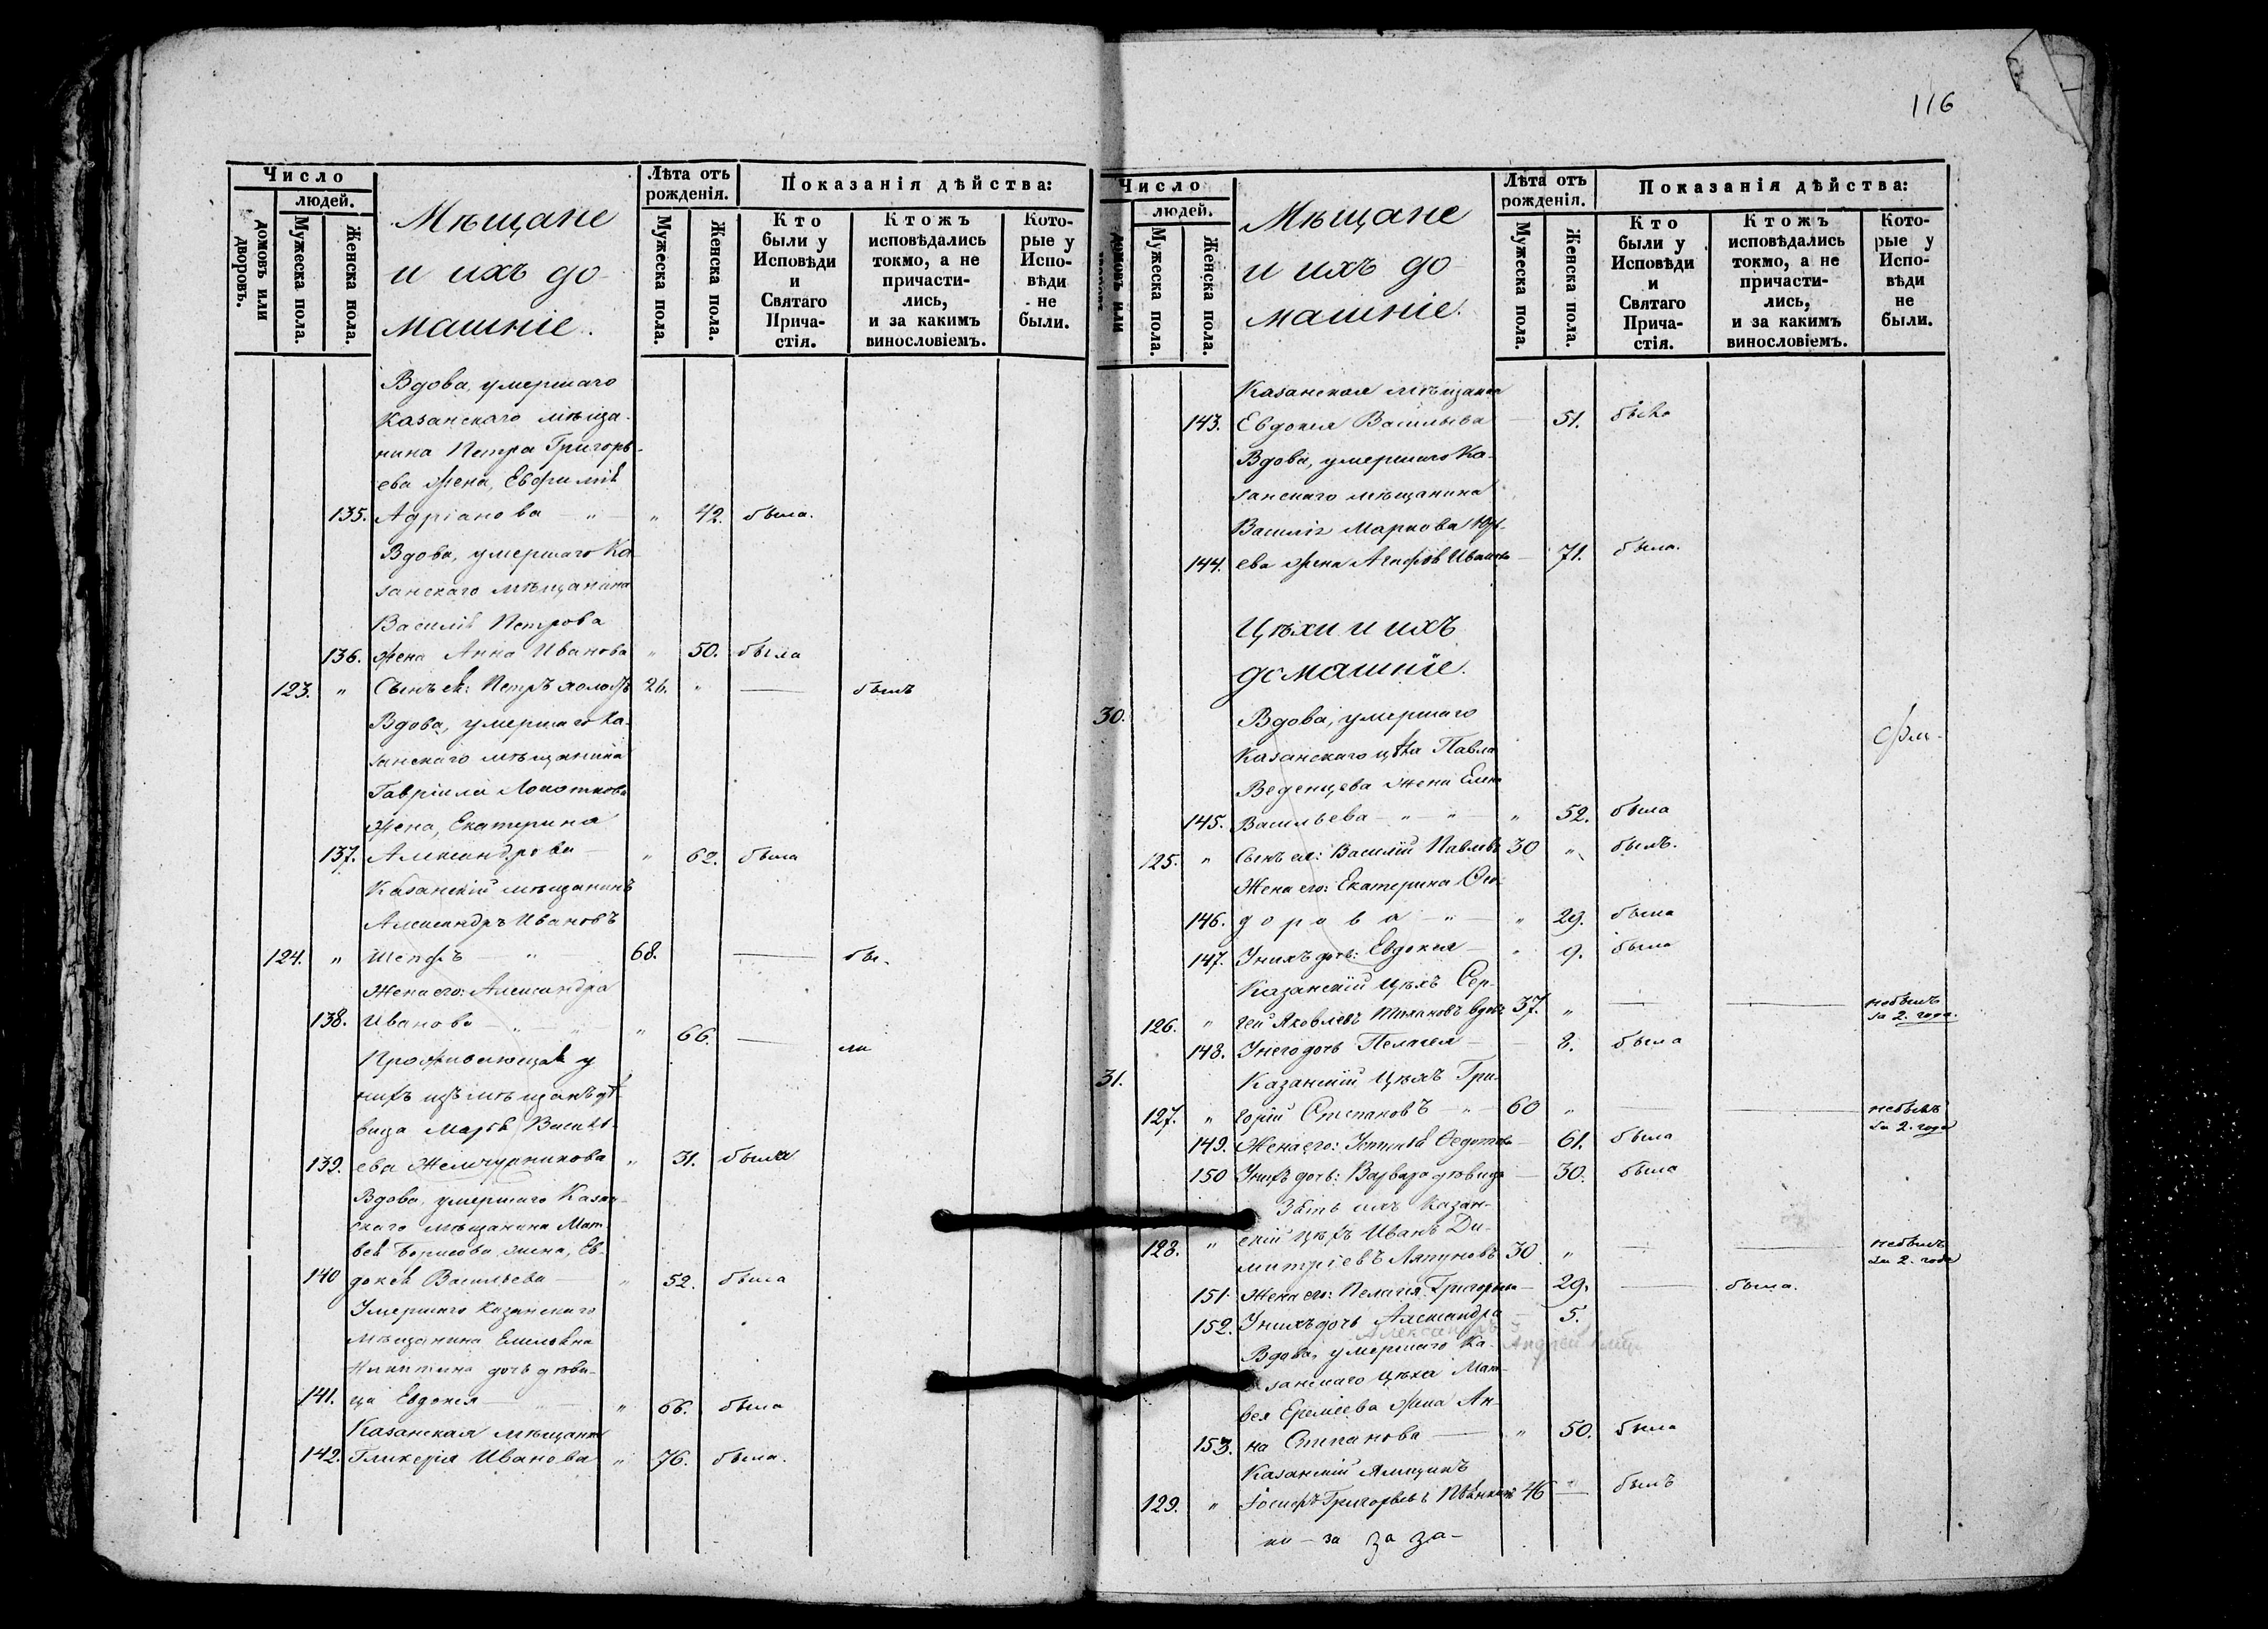 116
Число
людей.
домовъ или дворовъ.
Мужеска пола.
Женска пола.
Мѣщане
и ихъ до-
машніе.
Лѣта отъ
рожденія.
Мужеска пола.
Женска пола.
Показанія дѣйства:
Кто
были у
Исповѣди
и
Святаго
Прича-
стія.
Ктожъ
исповѣдались
токмо, а не
причасти-
лись,
и за какимъ
винословіемъ.
Кото-
рые у
Испо-
вѣди
не
были.
Вдова, умершаго
Казанскаго мѣща-
нина Петра Григорь-
ева жена, Евфимія
135. Адріанова — " — " 42. была.
Вдова, умершаго Ка-
занскаго мѣщанина
Василія Петрова
136. жена Анна Иванова " 50. была
123. " Сынъ ея: Петръ холостъ 26. " — былъ
Вдова, умершаго Ка-
занскаго мѣщанина
Гавріила
жена, Екатерина
137. Александрова — " 62. была
Казанскій мѣщанинъ
Александръ Ивановъ
124. " — " — 68. — бы-
Жена его: Александра
138. Иванова — " — " — " 66. — ли
Проживающая у
нихъ изъ мѣщанъ дѣ-
вица Марья Василь-
139. ева Жемчужникова " 31. была
Вдова, умершаго Казан-
скаго мѣщанина Мат-
вея Борисова жена, Ев-
140 докія Васильева — " 52. была
Умершаго Казанскаго
мѣщанина
Никитина дочь дѣви-
141. ца Евдокія — " — " 66. была
Казанская мѣщанка
142. Гликерія Иванова " 76. была.
Число
людей.
домовъ или
Мужеска пола.
Женска пола.
Мѣщане
и ихъ до-
машніе.
Лѣта отъ
рожденія.
Мужеска пола.
Женска пола.
Показанія дѣйства:
Кто
были у
Исповѣди
и
Святаго
Прича-
стія.
Ктожъ
исповѣдались
токмо, а не
причасти-
лись,
и за какимъ
винословіемъ.
Кото-
рые у
Испо-
вѣди
не
были.
Казанская мѣщанка
143. Евдокія Васильева — 51. была
Вдова, умершаго Ка-
занскаго мѣщанина
Василія Маркова
144. ева жена Агафья Иванова — 71. была.
Цѣхи и ихъ
домашніе.
30. Вдова, умершаго
Казанскаго цѣха Павла
Веденцева жена Елена
145. Васильева — " — " — " 52. была
125. " Сынъ ея: Василій Павловъ 30 " былъ.
Жена его: Екатерина Ѳео-
146. дорова — " — " 29. была
147. У нихъ дочь: Евдокія — " 9. была
Казанскій цѣхъ Сер-
126. " гей Яковлевъ вдовъ 37. " — — не былъ
за 2. года.
148. У него дочь Пелагея — — 8. была
31. Казанскій цѣхъ Гри-
127. " горій Степановъ — " — 60 " — — не былъ
за 2. года
149. Жена его: Устинія Ѳедотова — 61. была
150 У нихъ дочь: Варвара дѣвица — 30. была
Зять ихъ Казан-
128. " скій цѣхъ Иванъ Ди-
митріевъ Ляпуновъ 30 " — — не былъ
за 2. года
151. Жена его: Пелагія Григорьева — 29. — была.
152. У нихъ дочь Александра — 5.
Вдова, умершаго Ка-
занскаго цѣха Мат-
вея Еремѣева жена Ан-
153. на Степанова — " 50. была
Казанскій ямщикъ
129. " Іосифъ Григорьевъ 46 — былъ
за за за-